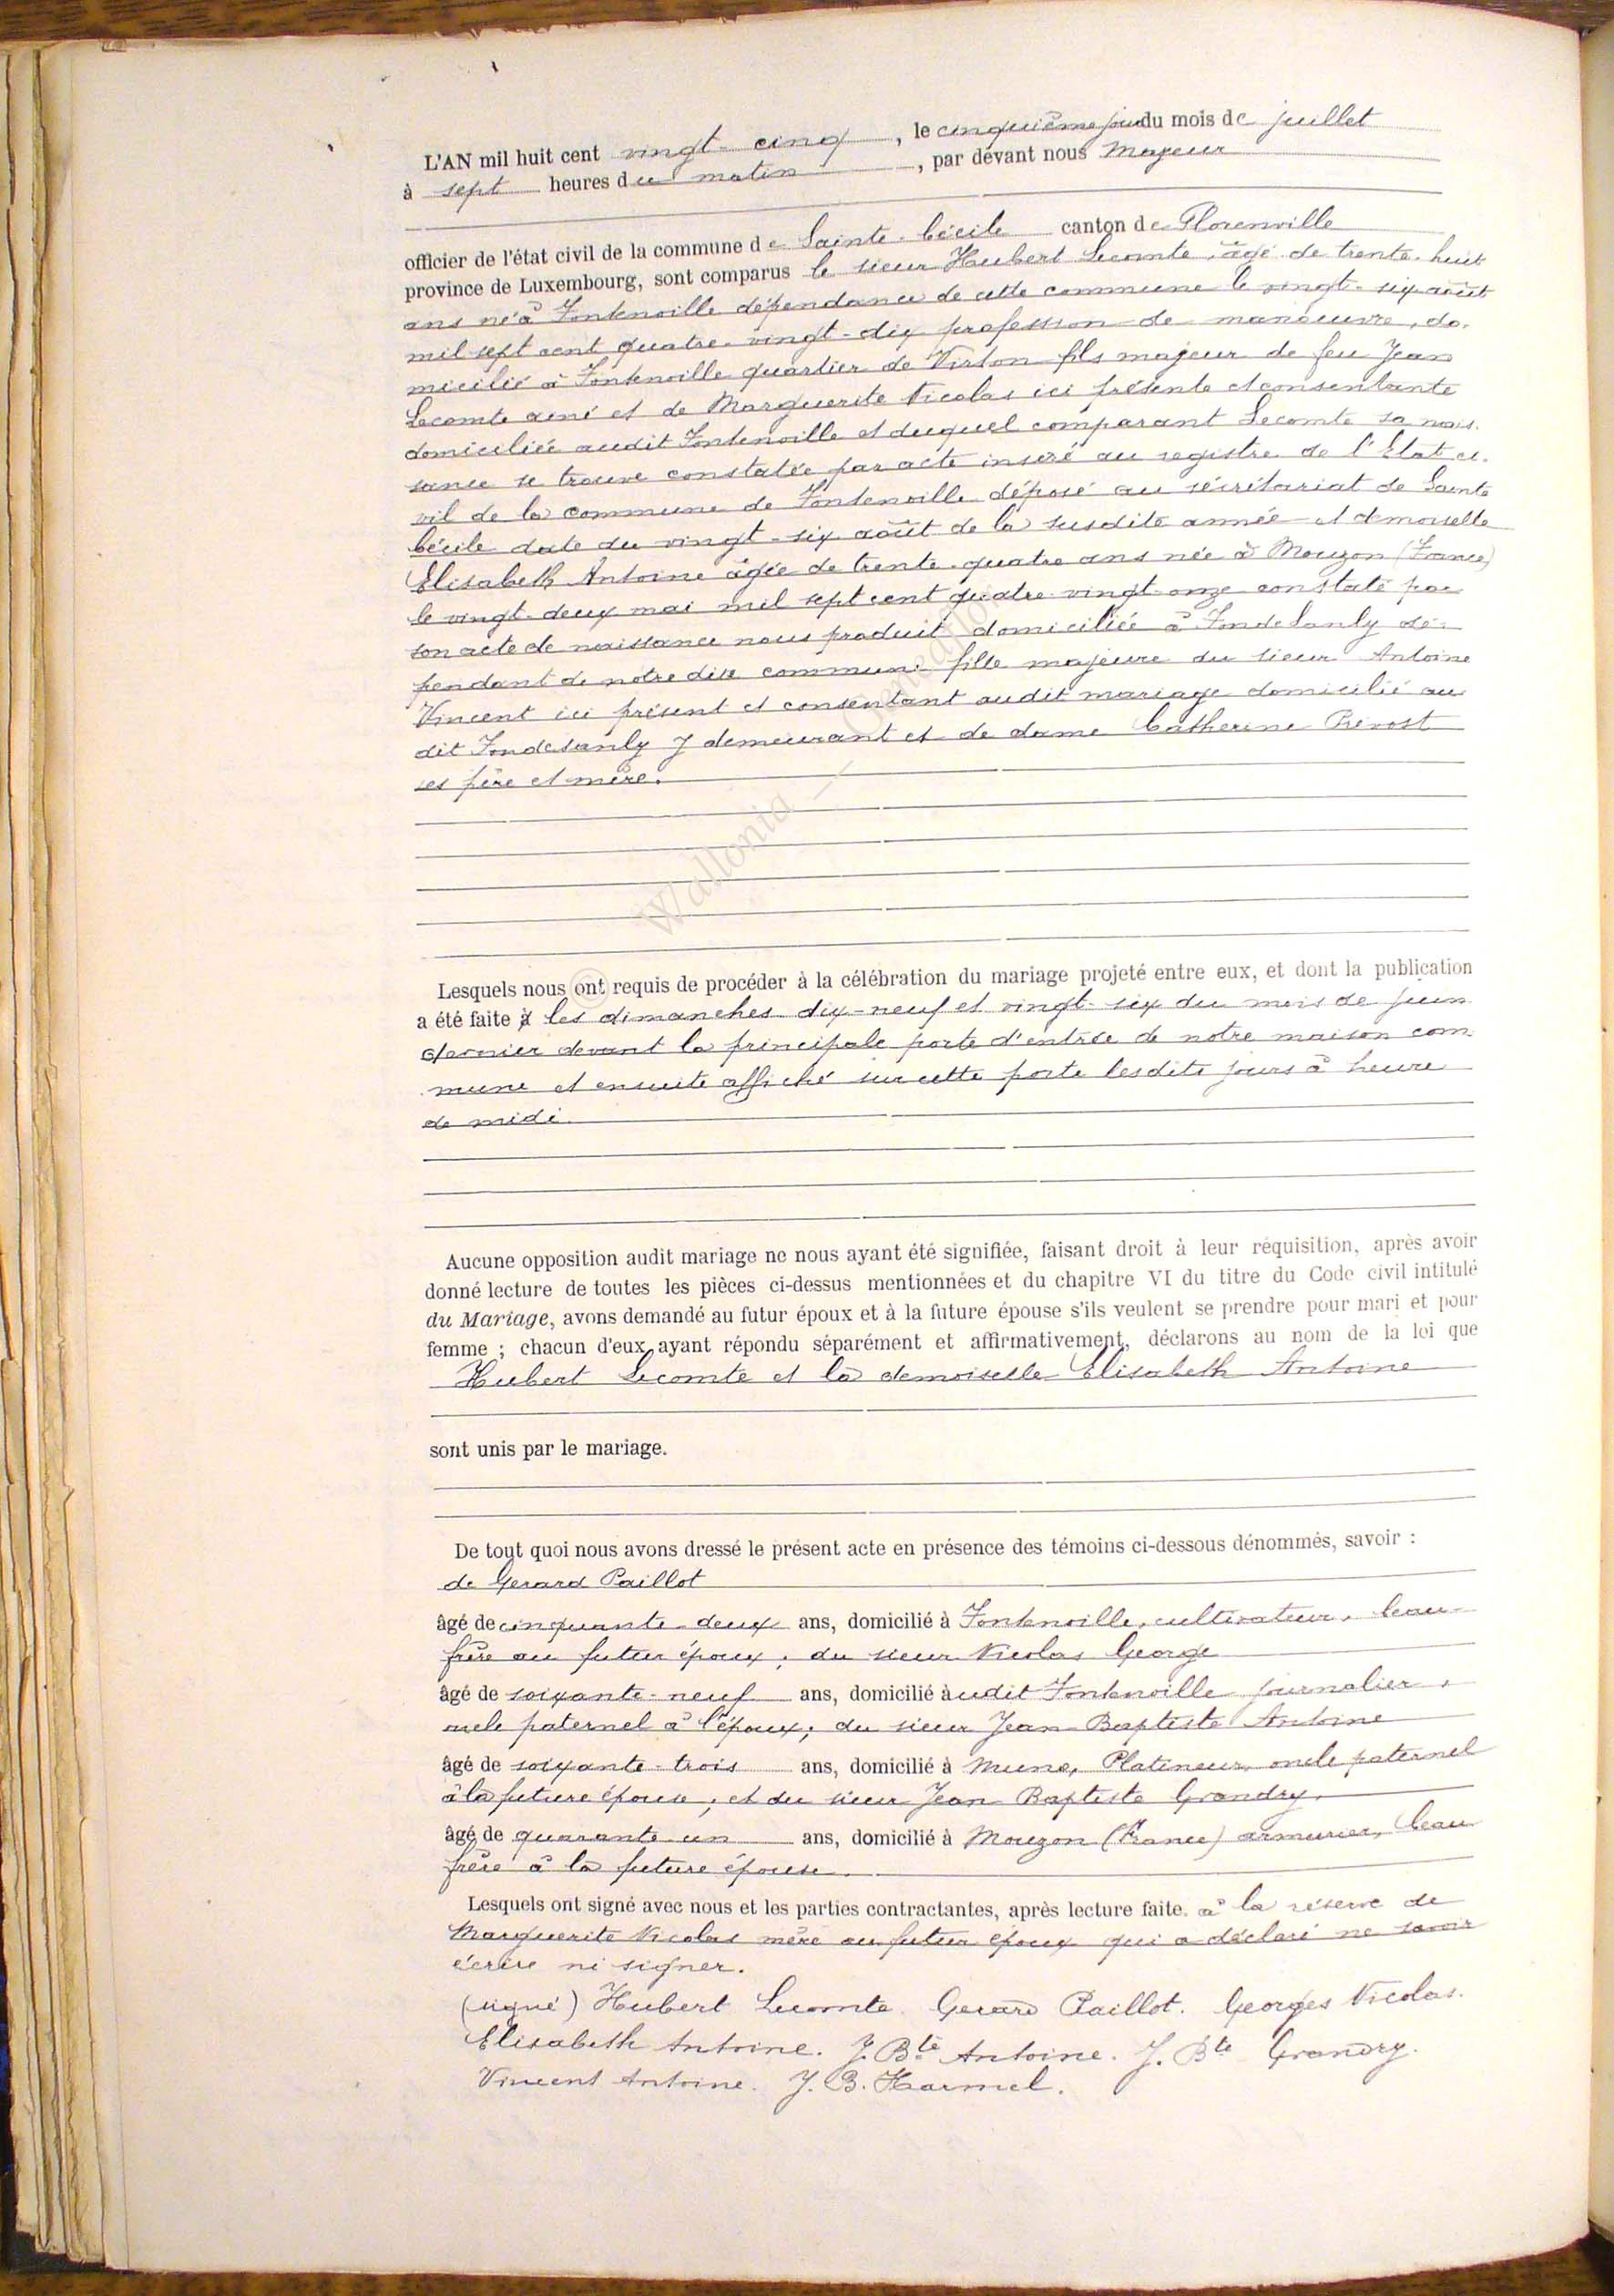 L'AN mil huit cent vingt-cinq, le cinquième jour du mois de juillet
à sept heures du matin, par devant nous Mayeur
officier de l'état civil de la commune de Sainte-Cécile canton de Florenville
province de Luxembourg, sont comparus le sieur Hubert Lecomte, âgé de trente-huit
ans né à Fontenoille dépendance de cette commune le vingt-six août
mil sept cent quatre-vingt-dix profession de manoeuvre, do-
micilié à Fontenoille quartier de Virton fils majeur de feu Jean
Lecomte ainé et de Marguerite Nicolas ici présente et consentante
domiciliée audit Fontenoille et duquel comparant Lecomte sa nais-
sance se trouve constatée par acte inséré au registre de l'Etat ci-
vil de la commune de Fontenoille déposé au sécrétariat de Sainte
Cécile date du vingt-six août de la susdite année et demoiselle
Elisabeth Antoine âgée de trente-quatre ans née à Mouzon (France)
le vingt-deux mai mil sept cent quatre-vingt-onze constaté par
son acte de naissance nous produit domiciliée à Fondesanly dé-
pendant de notre dite commune fille majeure du sieur Antoine
Vincent ici présent et consentant audit mariage domicilié au
dit Fondesanly y demeurant et de dame Catherine Prevost
ses père et mère.
© Wallonia
Lesquels nous ont requis de procéder à la célébration du mariage projeté entre eux, et dont la publication
a été faite à les dimanches dix-neuf et vingt-six du mois de juin
dernier devant la principale porte d'entrée de notre maison com-
mune et ensuite affiché sur cette porte lesdits jours à heure
de midi.
Aucune opposition audit mariage ne nous ayant été signifiée, faisant droit à leur réquisition, après avoir
donné lecture de toutes les pièces ci-dessus mentionnées et du chapitre VI du titre du Code civil intitulé
du Mariage, avons demandé au futur époux et à la future épouse s'ils veulent se prendre pour mari et pour
femme ; chacun d'eux ayant répondu séparément et affirmativement, déclarons au nom de la loi que
Hubert Lecomte et la demoiselle Elisabeth Antoine
sont unis par le mariage.
De tout quoi nous avons dressé le présent acte en présence des témoins ci-dessous dénommés, savoir :
de Gerard Paillot
âgé de cinquante-deux ans, domicilié à Fontenoille, cultivateur, beau-
frère au futur époux ; du sieur Nicolas George
âgé de soixante-neuf ans, domicilié àudit Fontenoille journalier,
oncle paternel à l'époux ; du sieur Jean-Baptiste Antoine
âgé de soixante-trois ans, domicilié à Muno, Platineur, oncle paternel
à la future épouse ; et du sieur Jean Baptiste Grandry,
âgé de quarante-un ans, domicilié à Mouzon (France) armurier, beau
frère à la future épouse.
Lesquels ont signé avec nous et les parties contractantes, après lecture faite. à la réserve de
Marguerite Nicolas mère au futur époux qui a déclaré ne savoir
écrire ni signer.
(signé) Hubert Lecomte. Gerard Paillot. Georges Nicolas.
Elisabeth Antoine. J. Bte Antoine. J. Bte Grandry.
Vincent Antoine. J. B. Harmel.